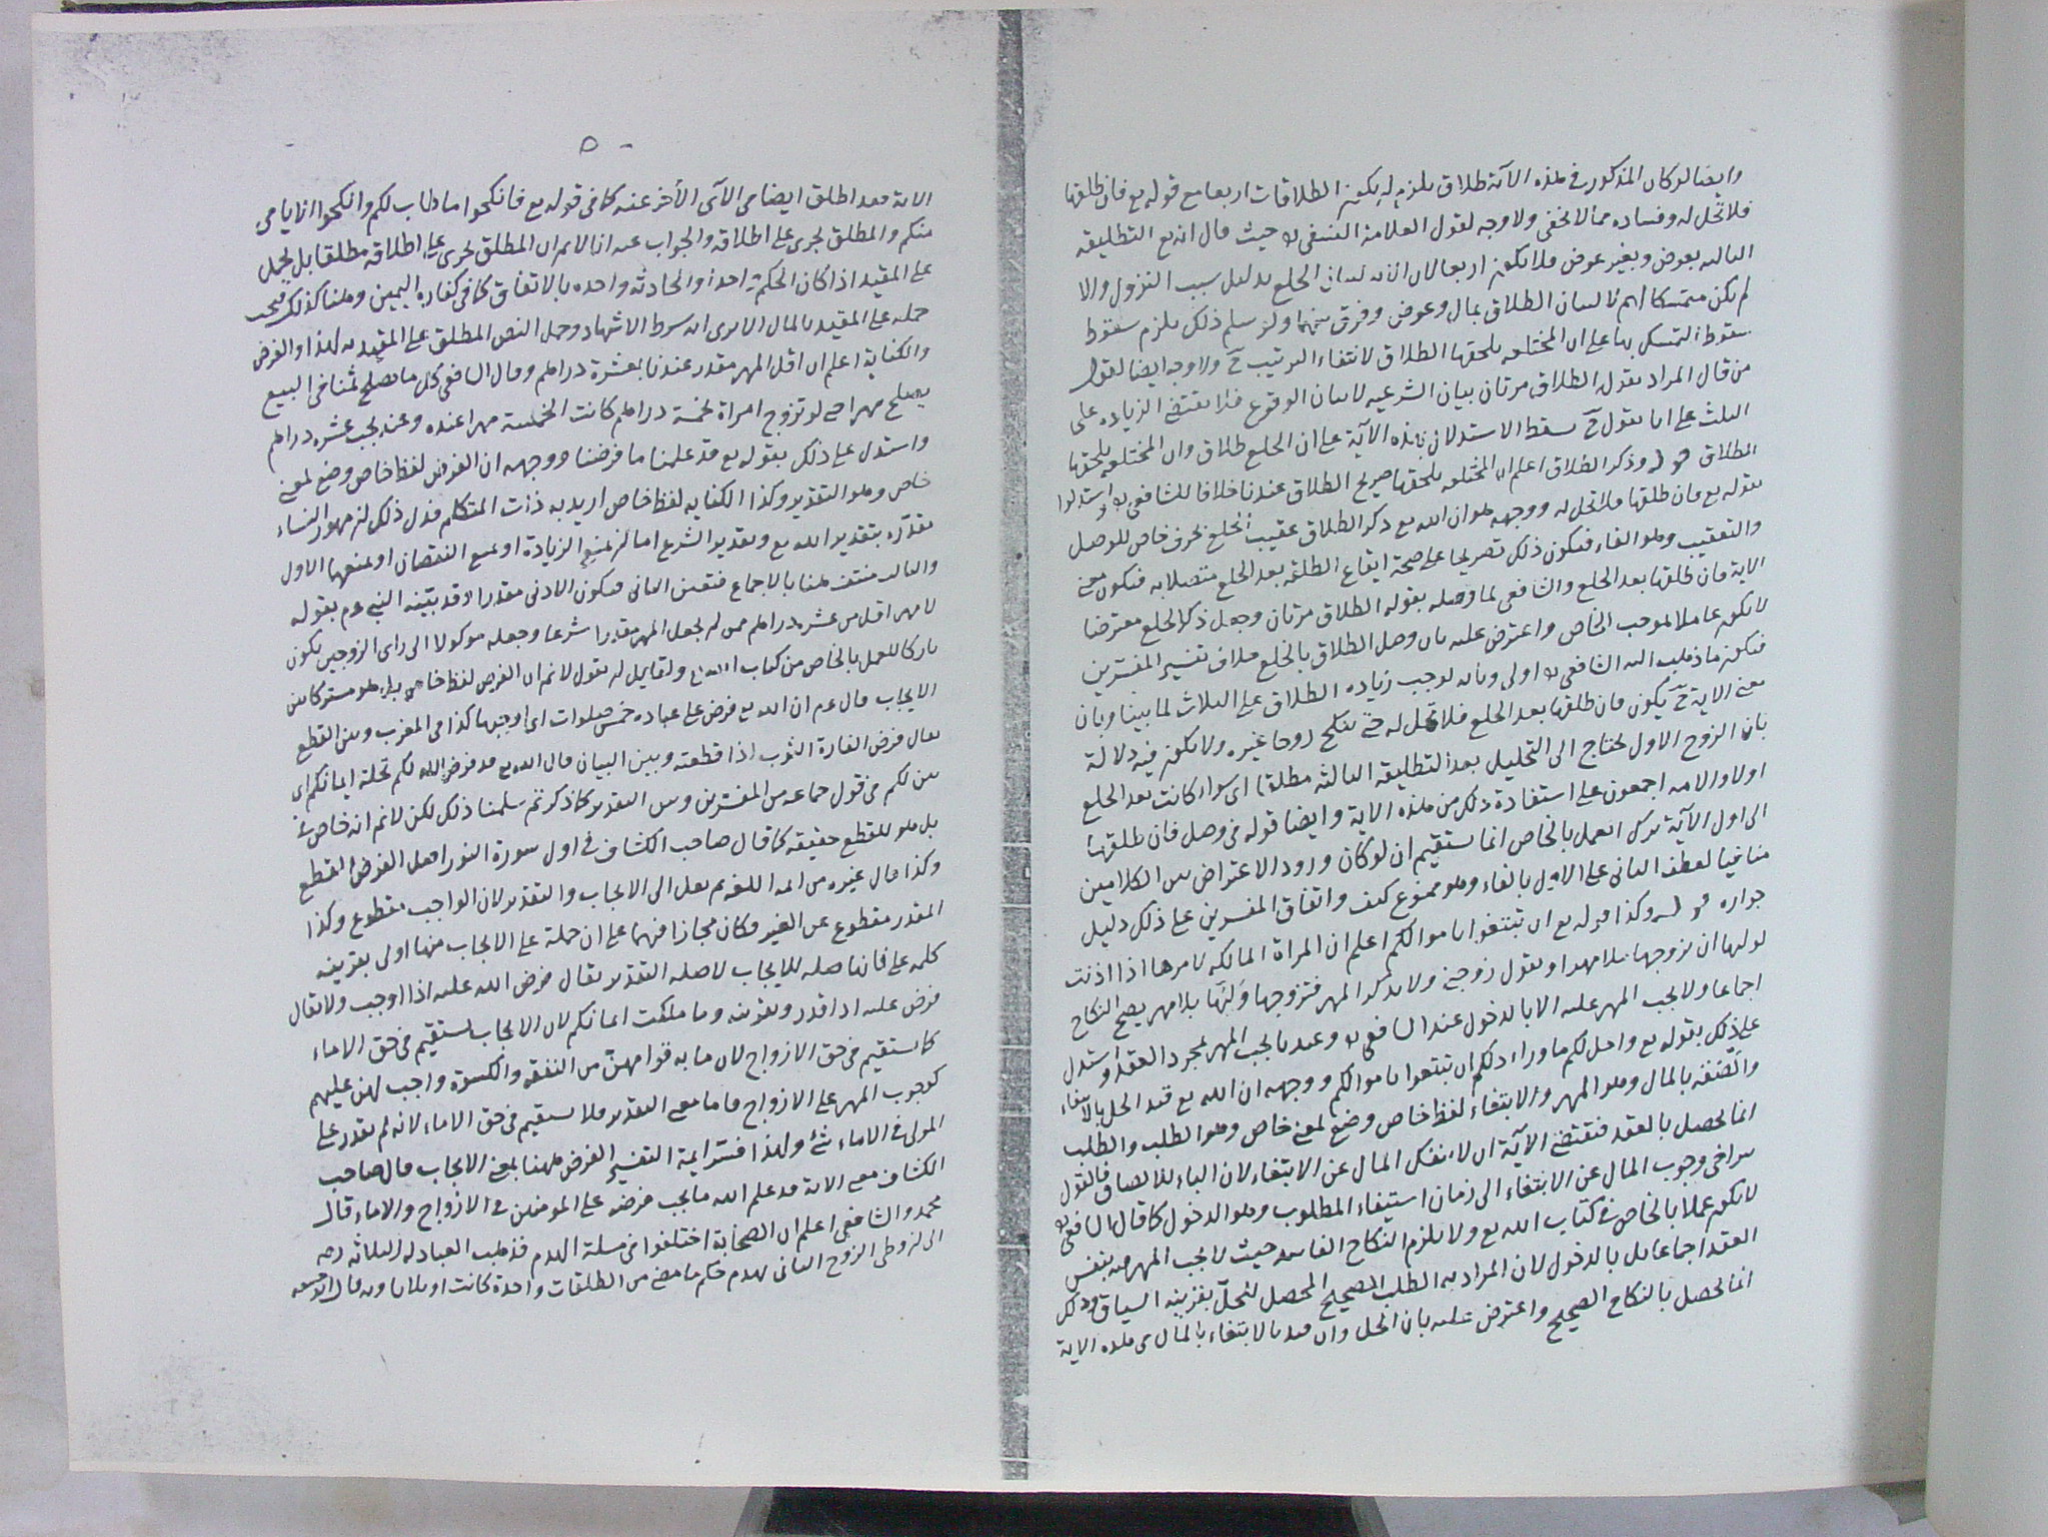 وايضا لو كان المذكور في هذه الآية طلاق يلزم ان يكون الطلاقات اربعا مع قوله تع فان طلقها
فلا تحل له وفساده مما لا يخفى ولا وجه لقول العلامة النسفي حيث قال انه تع التطليقه
الثالثه بعوض وبغير عوض فلا يكون اربعا لان الآية لبيان الخلع بدليل سبب النزول والا
لم يكن متمسكا لبيان الطلاق بمال وعوض وفرق بينهما ولو سلم ذلك يلزم سقوط
سقوط التمسك بها على ان المختلعه يلحقها الطلاق لانتفاء الترتيب ح ولا وجه ايضا لقول
من قال المراد بقوله الطلاق مرتان بيان الشرعيه لا بيان الوقوع فلا يقتضي الزياده على
الثلث على انا نقول ح سقط الاستدلال بهذه الآية على ان الخلع طلاق وان المختلعه يلحقها
الطلاق قوله وذكر الطلاق اعلم ان المختلعه يلحقها صريح الطلاق عندنا خلافا للشافعي واستدلوا
بقوله تع فان طلقها فلا تحل له ووجهه هو ان الله تع ذكر الطلاق عقيب الخلع بحرف خاص للوصل
والتعقيب وهو الفاء فيكون ذلك تصريحا على صحة ايقاع الطلقه بعد الخلع متصلا به فيكون معنى
الاية فان طلقها بعد الخلع والشافعي لما وصله بقوله الطلاق مرتان وجعل ذكر الخلع معترضا
لا يكون عاملا بموجب الخاص واعترض عليه بان وصل الطلاق بالخلع خلاف تفسير المفسرين
فيكون ما ذهب اليه الشافعي اولى وبانه يوجب زياده الطلاق على الثلاث لما بينا وبان
معنى الاية ح يكون فان طلقها بعد الخلع فلا تحل له حتى تنكح زوجا غيره ولا يكون فيه دلالة
بان الزوج الاول يحتاج الى التحليل بعد التطليقه الثالثه مطلقا اي سواء كانت بعد الخلع
اولا والامه اجمعون على استفادة ذلك من هذه الاية وايضا قوله في وصل فان طلقها
الى اول الآية ترك العمل بالخاص انما يستقيم ان لو كان ورود الاعتراض بين الكلامين
منافيا لعطف الثاني على الاول بالفاء وهو ممنوع كيف واتفاق المفسرين على ذلك دليل
جوازه قوله وكذا قوله تع ان تبتغوا باموالكم اعلم ان المراة المالكه لامرها اذا اذنت
لوليها ان يزوجها بلا مهر او يقول زوجني ولا يذكر المهر فتزوجها وليها بلا مهر يصح النكاح
اجماعا ولا يجب المهر عليه الا بالدخول عند الشافعي وعندنا يجب المهر بمجرد العقد واستدل
على ذلك بقوله تع واحل لكم ما وراء ذلكم ان تبتغوا باموالكم ووجهه ان الله تع قيد الحل بالابتغاء
والصقه بالمال وهو المهر والابتغاء لفظ خاص وضع لمعنى خاص وهو الطلب والطلب
انما يحصل بالعقد فتقتضي الآية ان لا ينفك المال عن الابتغاء لان الباء للالصاق فالقول
بتراخي وجوب المال عن الابتغاء الى زمان استيفاء المطلوب وهو الدخول كما قال الشافعي
لا يكون عملا بالخاص في كتاب الله تع ولا يلزم النكاح الفاسد حيث لا يجب المهر فيه بنفس
العقد اجماعا بل بالدخول لان المراد به الطلب الصحيح المحصل للحل بقرينه السياق وذلك
انما يحصل بالنكاح الصحيح واعترض عليه بان الحل وان قيد بالابتغاء بالمال في هذه الاية
٥
الاية فقد اطلق ايضا في الآي الأخر عنه كما في قوله تع فانكحوا ما طاب لكم وانكحوا الايامى
منكم والمطلق يجري على اطلاقه والجواب عنه انا لا نم ان المطلق يجري على اطلاقه مطلقا بل يحمل
على المقيد اذا كان الحكم واحدا والحادثه واحده بالاتفاق كما في كفاره اليمين وهنا كذلك فيجب
حمله على المقيد بالمال الا يرى انه شرط الاشهاد وحمل النص المطلق على المقيد به لهذا والفرض
والكناية اعلم ان اقل المهر مقدر عندنا بعشرة دراهم وقال الشافعي كل ما يصلح ثمنا في البيع
يصلح مهرا حتى لو تزوج امراة بخمسة دراهم كانت الخمسة مهرا عنده وعندنا يجب عشره دراهم
واستدل على ذلك بقوله تع قد علمنا ما فرضنا ووجهه ان الفرض لفظ خاص وضع لمعنى
خاص وهو التقدير وكذا الكنايه لفظ خاص اريد به ذات المتكلم فدل ذلك ان مهور النساء
مقدره بتقدير الله تع وتقدير الشرع اما ان يمنع الزيادة او يمنع النقصان او يمنعهما الاول
والثالث منتف هنا بالاجماع فتعين الثاني فيكون الادنى مقدرا وقد بينه النبي عم بقوله
لا مهر اقل من عشره دراهم فمن لم يجعل المهر مقدرا شرعا وجعله موكولا الى راي الزوجين يكون
تاركا للعمل بالخاص من كتاب الله تع ولقايل ان يقول لا نم ان الفرض لفظ خاص بل هو مشترك بين
الايجاب قال عم ان الله تع فرض على عباده خمس صلوات اي اوجبها كذا في المغرب وبين القطع
يقال فرض الفارة الثوب اذا قطعته وبين البيان قال الله تع قد فرض الله لكم تحلة ايمانكم اي
بين لكم في قول جماعه من المفسرين وبين التقدير كما ذكرتم سلمنا ذلك لكن لا نم انه خاص
بل هو للقطع حقيقه كما قال صاحب الكشاف في اول سورة النور اصل الفرض القطع
وكذا قال غيره من ائمه اللغه ثم نقل الى الايجاب والتقدير لان الواجب مقطوع وكذا
المقدر مقطوع عن الغير فكان مجازا فيهما على ان حمله على الايجاب منها اولى بقرينه
كلمه على فانها صله للايجاب لا صله التقدير يقال فرض الله عليه اذا اوجب ولا يقال
فرض عليه اذا قدر وبقرينه وما ملكت ايمانكم لان الايجاب يستقيم في حق الاماء
كما يستقيم في حق الازواج لان ما به قوامهن من النفقه والكسوة واجب لهن عليهم
كوجوب المهر على الازواج فاما معنى التقدير فلا يستقيم في حق الاماء لانه لم يقدر على
المولى في الاماء شئ ولهذا فسر ايمة التفسير الفرض هنا بمعنى الايجاب قال صاحب
الكشاف معنى الاية قد علم الله ما يجب فرضه على المومنين في الازواج والاماء قال
محمد والشافعي اعلم ان الصحابة اختلفوا في مسلة الهدم فذهب العبادله الثلاثه رضه
الى ان وطى الزوج الثاني يهدم حكم ما مضى من الطلقات واحدة كانت او ثلاثا وبه قال